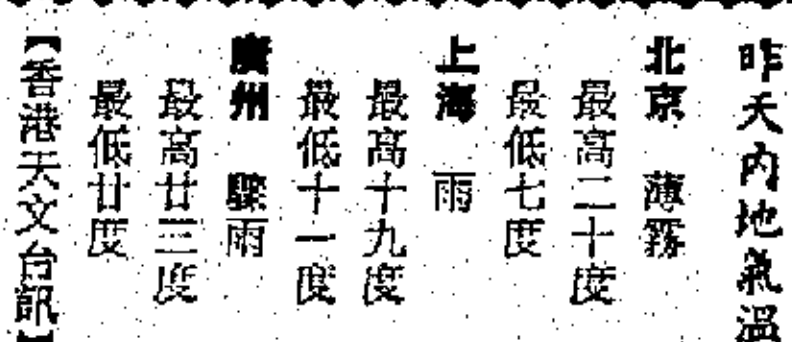 昨天內地氣溫
北京 薄霧
最高二十度
最低七度
上海 雨
最高十九度
最低十一度
廣州 驟雨
最高廿三度
最低廿度
【香港天文台訊】